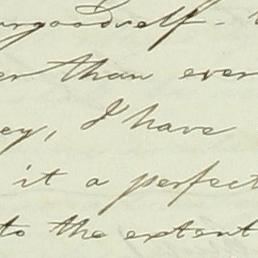 urgoodself -
er than ever
ey, I have
it a perfect
to the extent